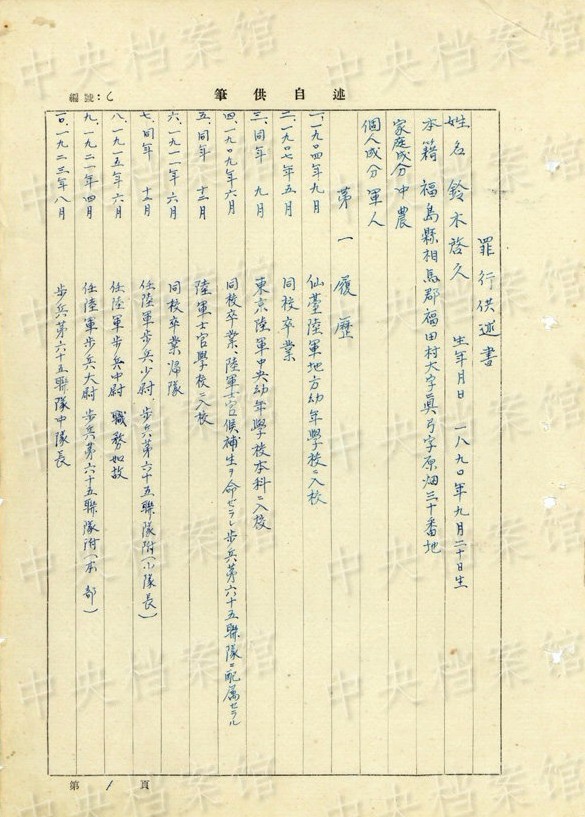 述自供筆
編號：6
罪行供述書
姓名 鈴木啓久 生年月日 一八九〇年九月二十日生
本籍 福島縣相馬郡福田村大字眞弓字原畑三十番地
家庭成分 中農
個人成分 軍人
第一 履歷
一、一九〇四年九月 仙臺陸軍地方幼年學校ニ入校
二、一九〇七年五月 同校卒業
三、同年 九月 東京陸軍中央幼年學校本科ニ入校
四、一九〇九年六月 同校卒業、陸軍士官候補生ヲ命ゼラレ步兵第六十五聯隊ニ配屬セラル
五、同年 十二月 陸軍士官學校ニ入校
六、一九一一年六月 同校卒業歸隊
七、同年 十二月 任陸軍步兵少尉 步兵第六十五聯隊附（小隊長）
八、一九一五年六月 任陸軍步兵中尉 職務如故
九、一九二一年四月 任陸軍步兵大尉 步兵第六十五聯隊附（本部）
一〇、一九二三年八月 步兵第六十五聯隊中隊長
第 1 頁
中央档案馆